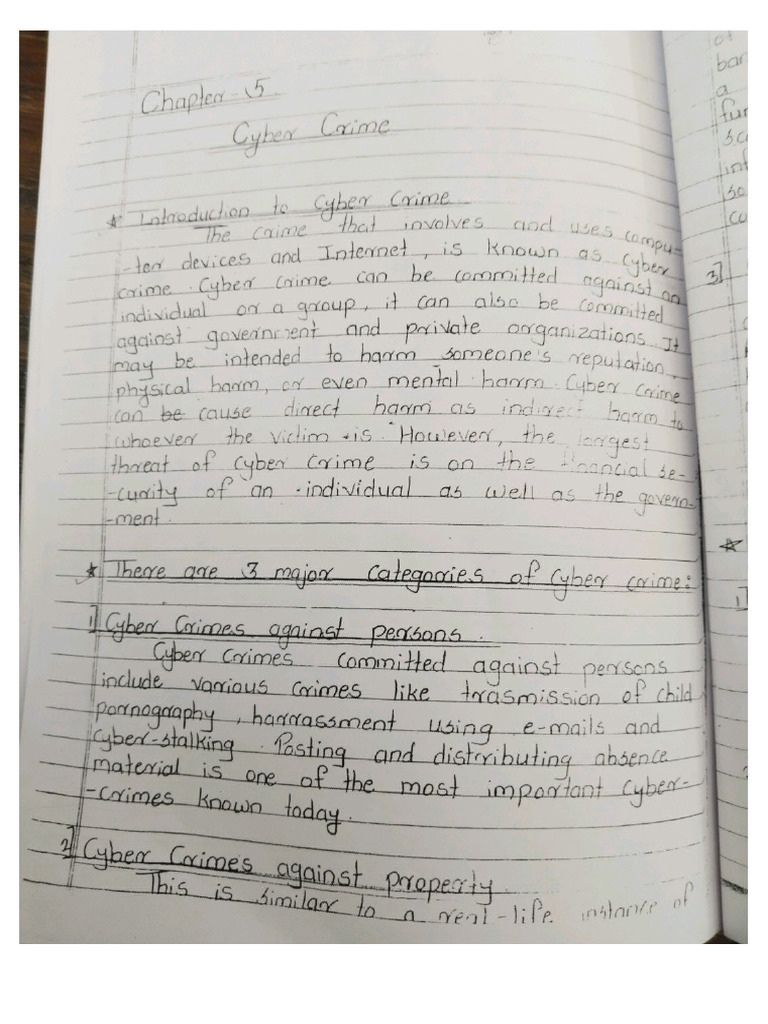 Chapter-5.
Cyber Crime
* Introduction to Cyber Crime
The Crime that involves and uses compu-
-ter devices and Internet, is known as Cyber
crime. Cyber crime can be committed against an
individual or a group, it can also be committed
against government and private organizations. It
may be intended to harm someone's reputation,
physical harm, or even mental harm. Cyber Crime
can be cause direct harm as indirect harm to
whoever the victim is. However, the largest
threat of Cyber Crime is on the financial se-
-curity of an individual as well as the govern-
-ment.
* There are 3 major categories of Cyber crime:
1] Cyber Crimes against persons.
Cyber Crimes committed against persons
include various Crimes like trasmission of child
pornography, harrassment using e-mails and
cyber-stalking. Posting and distributing absence
material is one of the most important Cyber-
-Crimes known today.
2] Cyber Crimes against property.
This is similar to a real-life instance of
of
bar
a
fur
sc
inf
so
cu
3]
*
1]